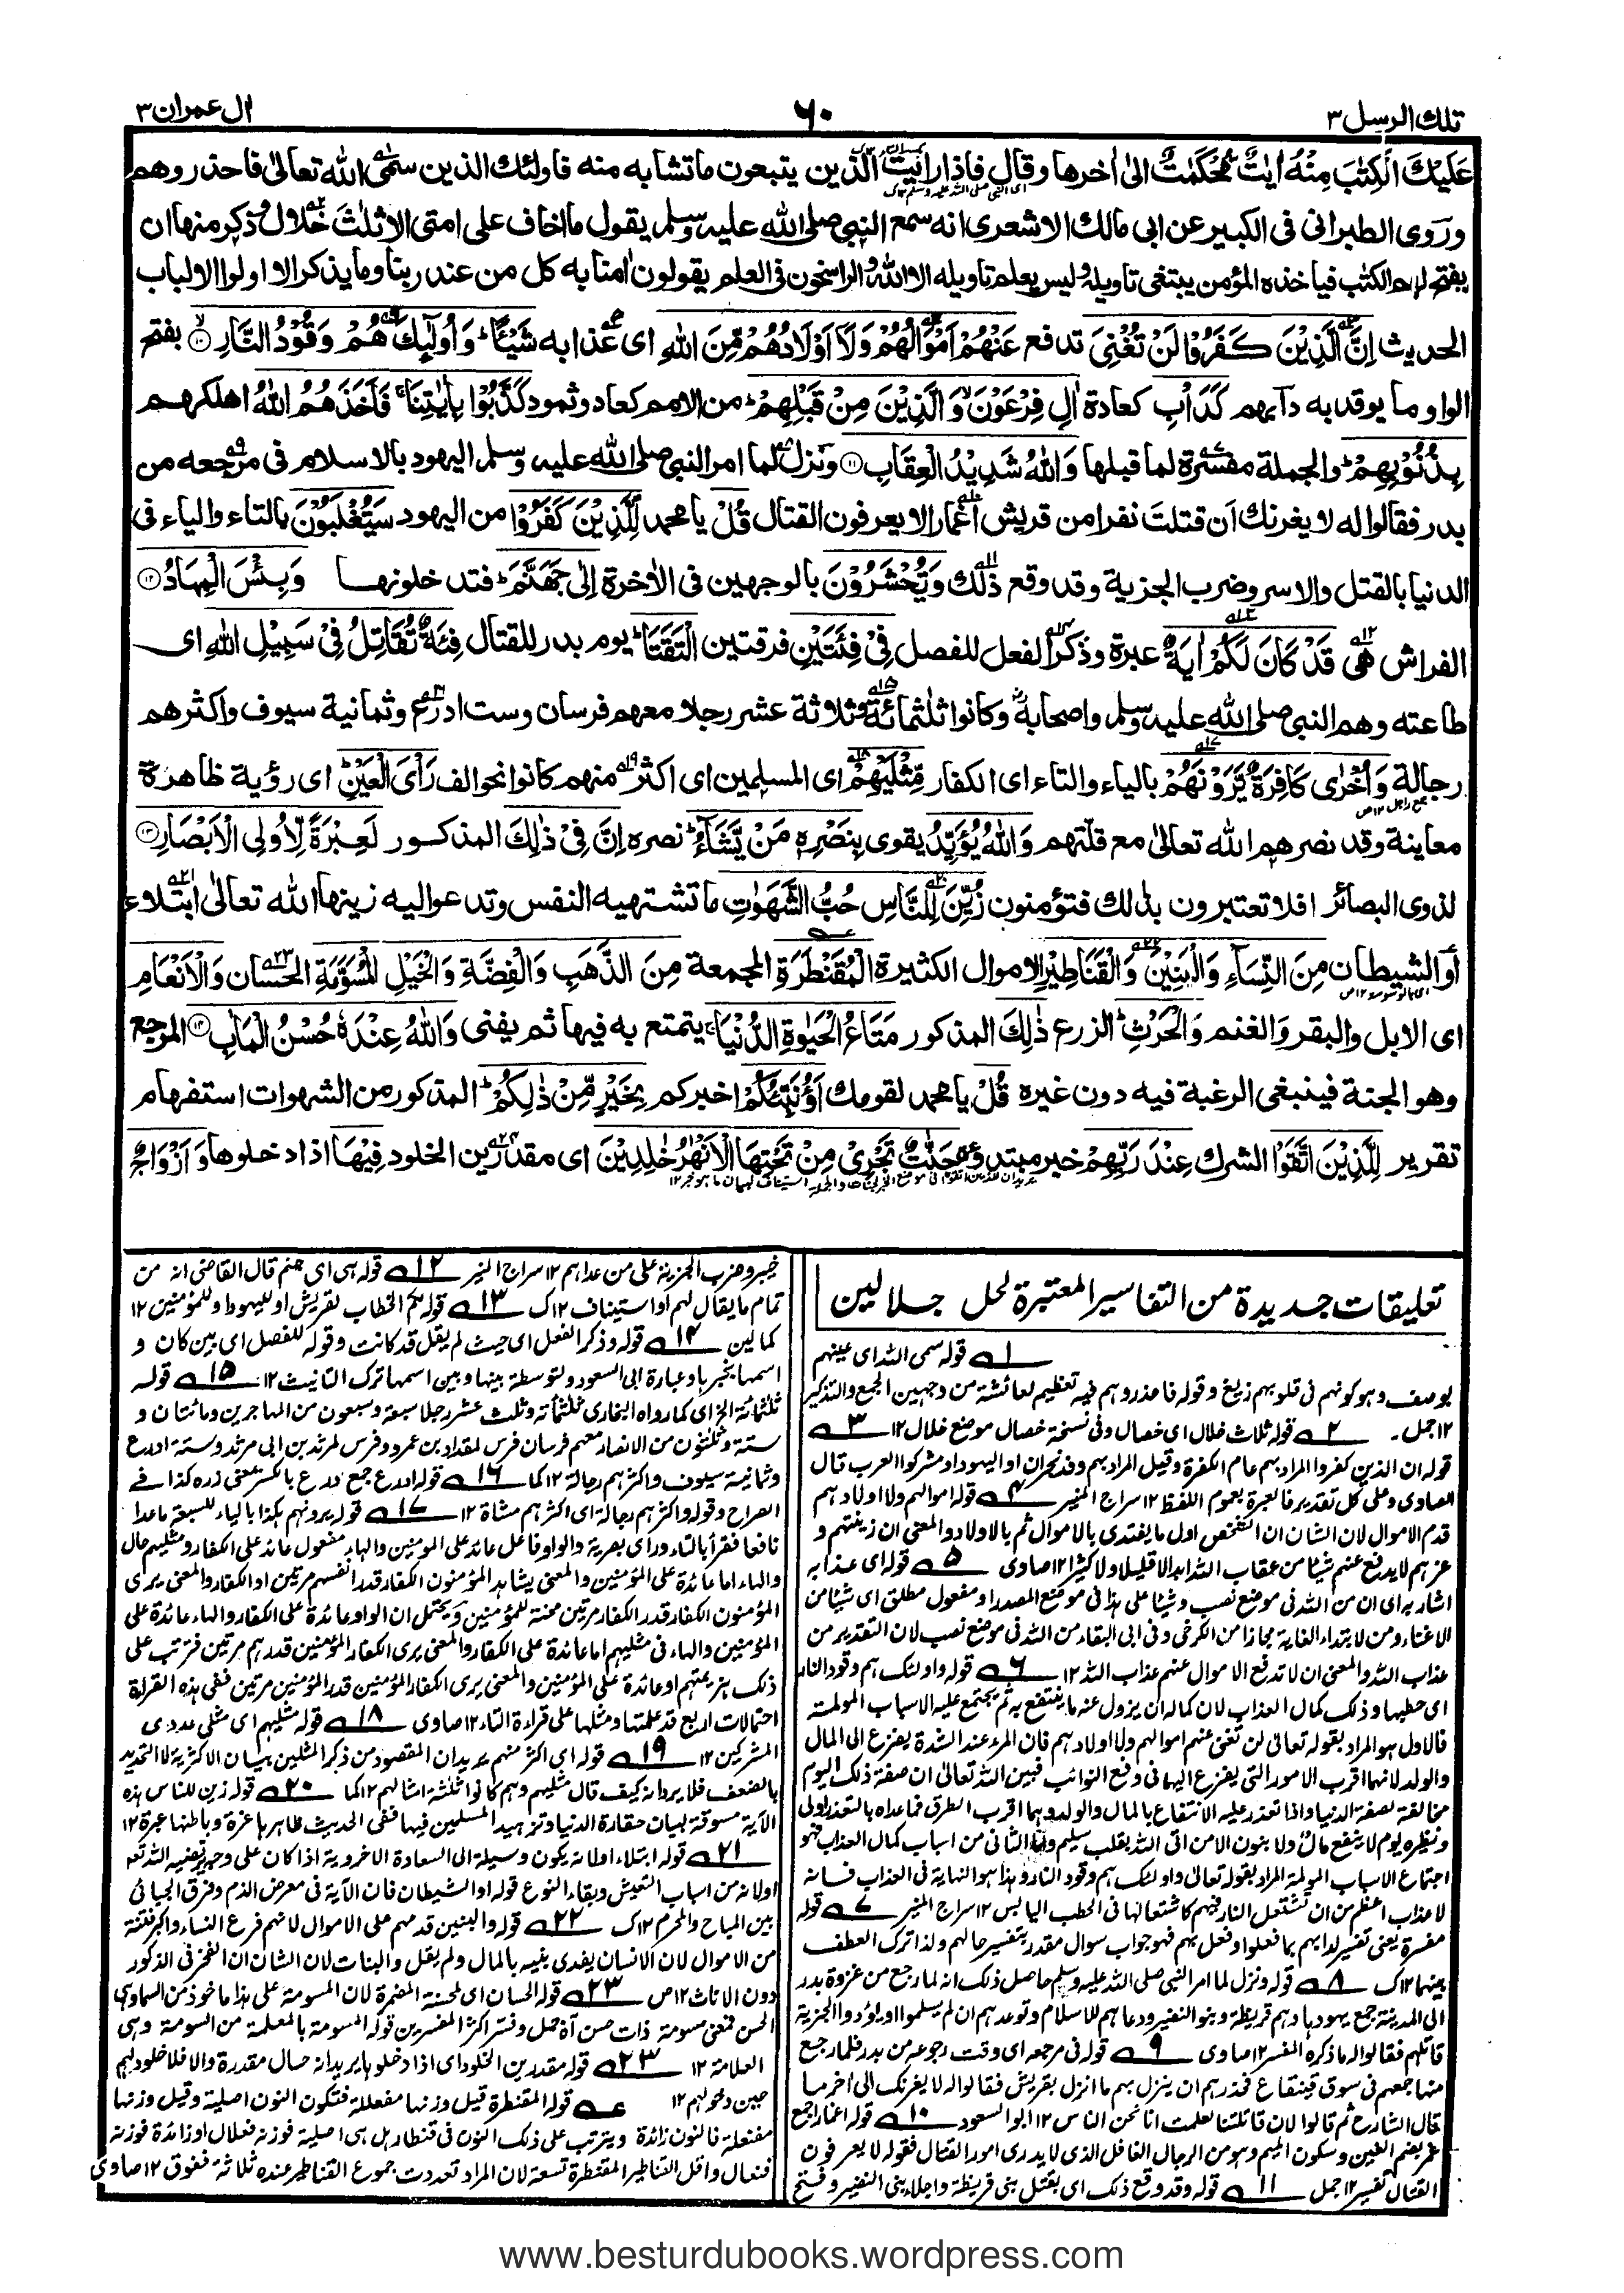 تلك الرسل ٣
٦٠
ال عمران ٣
عَلَيْكَ الْكِتٰبَ مِنْهُ اٰيٰتٌ مُّحْكَمٰتٌ الىٰ اٰخرها وقال فاذا رايت الذين يتبعون ماتشابه منه فاولئك الذين سمّى الله تعالىٰ فاحذروهم
ورَوى الطبرانى فى الكبير عن ابى مالك الاشعرى انه سمع النبي صلى الله عليه وسلم يقول ما اخاف على امتى الا ثلٰثَ خلال وذكر منها ان
يفتح لهم الكتٰب فيأخذه المؤمن يبتغى تاويله وليس يعلم تاويله الا الله والراسخون فى العلم يقولون اٰمنا به كل من عند ربنا وما يذكر الا اولوا الالباب
الحديث اِنَّ الَّذِيْنَ كَفَرُوْا لَنْ تُغْنِىَ تدفع عَنْهُمْ اَمْوَالُهُمْ وَلَآ اَوْلَادُهُمْ مِّنَ اللهِ اى عذابه شَيْـًٔا ۭ وَاُولٰٓئِكَ هُمْ وَقُوْدُ النَّارِ ۝١٠ بفتح
الواو ما يوقد به دأبهم كَدَاْبِ كعادة اٰلِ فِرْعَوْنَ ۙ وَالَّذِيْنَ مِنْ قَبْلِهِمْ ۭ من الامم كعاد وثمود كَذَّبُوْا بِاٰيٰتِنَا ۚ فَاَخَذَهُمُ اللهُ اهلكهم
بِذُنُوْبِهِمْ ۭ والجملة مفسّرة لما قبلها وَاللهُ شَدِيْدُ الْعِقَابِ ۝١١ ونزل لما امر النبي صلى الله عليه وسلم اليهود بالاسلام فى مرجعه من
بدر فقالوا له لا يغرنك اَن قتلتَ نفرا من قريش اغمارا لا يعرفون القتال قُلْ يا محمد لِّلَّذِيْنَ كَفَرُوْا من اليهود سَتُغْلَبُوْنَ بالتاء والياء فى
الدنيا بالقتل والاسر وضرب الجزية وقد وقع ذٰلك وَتُحْشَرُوْنَ بالوجهين فى الاٰخرة اِلٰى جَهَنَّمَ ۭ فتدخلونها وَبِئْسَ الْمِهَادُ ۝١٢
الفراش هى قَدْ كَانَ لَكُمْ اٰيَةٌ عبرة وذكر الفعل للفصل فِىْ فِئَتَيْنِ فرقتين الْتَقَتَا ۭ يوم بدر للقتال فِئَةٌ تُقَاتِلُ فِىْ سَبِيْلِ اللهِ اى
طاعته وهم النبي صلى الله عليه وسلم واصحابه وكانوا ثلٰثمائة وثلاثة عشر رجلا معهم فرسان وست ادرع وثمانية سيوف واكثرهم
رجالة وَاُخْرٰى كَافِرَةٌ يَّرَوْنَهُمْ بالياء والتاء اى الكفار مِّثْلَيْهِمْ اى المسلمين اى اكثر منهم كانوا نحو الف رَاْىَ الْعَيْنِ ۭ اى رؤية ظاهرة
معاينة وقد نصرهم الله تعالىٰ مع قلتهم وَاللهُ يُؤَيِّدُ يقوى بِنَصْرِهٖ مَنْ يَّشَآءُ ۭ نصره اِنَّ فِىْ ذٰلِكَ المذكور لَعِبْرَةً لِّاُولِى الْاَبْصَارِ ۝١٣
لذوى البصائر افلا تعتبرون بذلك فتؤمنون زُيِّنَ لِلنَّاسِ حُبُّ الشَّهَوٰتِ ما تشتهيه النفس وتدعو اليه زينها الله تعالىٰ ابتلاءً
أو الشيطان مِنَ النِّسَآءِ وَالْبَنِيْنَ وَالْقَنَاطِيْرِ الاموال الكثيرة الْمُقَنْطَرَةِ المجمعة مِنَ الذَّهَبِ وَالْفِضَّةِ وَالْخَيْلِ الْمُسَوَّمَةِ الحسان وَالْاَنْعَامِ
اى الابل والبقر والغنم وَالْحَرْثِ ۭ الزرع ذٰلِكَ المذكور مَتَاعُ الْحَيٰوةِ الدُّنْيَا ۚ يتمتع به فيها ثم يفنى وَاللهُ عِنْدَهٗ حُسْنُ الْمَاٰبِ ۝١٤ المرجع
وهو الجنة فينبغى الرغبة فيه دون غيره قُلْ يا محمد لقومك اَؤُنَبِّئُكُمْ اخبركم بِخَيْرٍ مِّنْ ذٰلِكُمْ ۭ المذكور من الشهوات استفهام
تقرير لِلَّذِيْنَ اتَّقَوْا الشرك عِنْدَ رَبِّهِمْ خبر مبتدؤه جَنّٰتٌ تَجْرِىْ مِنْ تَحْتِهَا الْاَنْهٰرُ خٰلِدِيْنَ اى مقدرين الخلود فِيْهَا اذا دخلوها وَاَزْوَاجٌ
تعليقات جديدة من التفاسير المعتبرة لحل جلالين
١ قوله سمى الله اى عينهم
بوصف وهو كونهم فى قلوبهم زيغ وقوله فاحذروهم فيه تعظيم لعائشة من وجهين الجمع والتذكير
١٢ جمل۔ ٢ قوله ثلاث خلال اى خصال وفى نسخة خصال موضع خلال ١٢ ٣
قوله ان الذين كفروا المراد بهم عام الكفرة وقيل المراد بهم وفد نجران او اليهود او مشركوا العرب قال
الصاوى وعلى كل تقدير فالعبرة بعموم اللفظ ١٢ سراج المنير ٤ قوله اموالهم ولا اولادهم
قدم الاموال لان الشان ان الشخص اول ما يفتدى بالاموال ثم بالاولاد والمعنى ان زينتهم و
عزهم لا يدفع عنهم شيئا من عقاب الله ابدا لا قليلا ولا كثيرا ١٢ صاوى ٥ قوله اى عذابه
اشار به اى ان من الله فى موضع نصب وشيئا على هذا فى موضع المصدر او مفعول مطلق اى شيئا من
الاغناء ومن لابتداء الغاية مجازا من الكرخى وفى ابى البقاء من الله فى موضع نصب لان التقدير من
عذاب الله والمعنى ان لا تدفع الاموال عنهم عذاب الله ١٢ ٦ قوله واولئك هم وقود النار
اى حطبها وذلك كمال العذاب لان كماله ان يزول عنه ما ينتفع به ثم يجتمع عليه الاسباب المولمة
فالاول هو المراد بقوله تعالى لن تغنى عنهم اموالهم ولا اولادهم فان المرء عند الشدة يفزع الى المال
والولد لانهما اقرب الامور التى يفزع اليها فى دفع النوائب فبين الله تعالى ان صفة ذلك اليوم
مخالفة لصفة الدنيا واذا تعذر عليه الانتفاع بالمال والولد وهما اقرب الطرق فما عداه بالتعذر اولى
ونظيره يوم لا ينفع مال ولا بنون الا من اتى الله بقلب سليم واما الثانى من اسباب كمال العذاب فهو
اجتماع الاسباب المولمة المراد بقوله تعالى واولئك هم وقود النار وهذا هو النهاية فى العذاب فانه
لا عذاب اعظم من ان تشتعل النار فيهم كاشتعالها فى الحطب اليابس ١٢ سراج المنير ٧ قوله
مفسرة يعنى تفسير لدأبهم بما فعلوا وفعل بهم فهو جواب سوال مقدر بتفسير حالهم ولذا ترك العطف
بينهما ١٢ ك ٨ قوله ونزل لما امر النبي صلى الله عليه وسلم حاصل ذلك انه لما رجع من غزوة بدر
الى المدينة جمع يهودها وهم قريظة وبنو النضير ودعاهم للاسلام وتوعدهم ان لم يسلموا او يؤدوا الجزية
قاتلهم فقالوا له ما ذكره المفسر ١٢ صاوى ٩ قوله فى مرجعه اى وقت رجوعه من بدر فلما رجع
منها جمعهم فى سوق قينقاع فحذرهم ان ينزل بهم ما انزل بقريش فقالوا له لا يغرنك الى اخر ما
قال الشارح ثم قالوا لان قاتلتنا لعلمت انا نحن الناس ١٢ ابو السعود ١٠ قوله اغمارا جمع
غمر بضم الغين وسكون الميم وهو من الرجال الغافل الذى لا يدرى امور القتال فقوله لا يعرفون
القتال تفسير ١٢ جمل ١١ قوله وقد وقع ذلك اى بقتل بنى قريظة واجلاء بنى النضير وفتح
خيبر وضرب الجزية على من عداهم ١٢ سراج المنير ١٢ قوله هى اى جهنم قال القاضى انه من
تمام ما يقال لهم او استيناف ١٢ ك ١٣ قوله لكم الخطاب لقريش او لليهود او للمؤمنين ١٢
كمالين ١٤ قوله وذكر الفعل اى حيث لم يقل قد كانت وقوله للفصل اى بين كان و
اسمها بخبرها وعبارة ابى السعود ولتوسطه بينها وبين اسمها ترك التانيث ١٢ ١٥ قوله
ثلثمائة الخ اى كما رواه البخارى ثلثمائة وثلث عشر رجلا سبعة وسبعون من المهاجرين ومائتان و
ستة وثلثون من الانصار معهم فرسان فرس لمقداد بن عمرو وفرس لمرثد بن ابى مرثد وستة ادرع
وثمانية سيوف واكثرهم رجالة ١٢ كما ١٦ قوله ادرع جمع درع بالكسر بمعنى زره كذا فے
الصراح وقوله واكثرهم رجالة اى اكثرهم مشاة ١٢ ١٧ قوله يرونهم هكذا بالياء للسبعة ما عدا
نافعا فقرأ بالتاء وراى بصرية والواو فاعل عائد على المومنين والهاء مفعول عائد على الكفار ومثليهم حال
والهاء اما عائدة على المؤمنين والمعنى يشاهد المؤمنون الكفار قدر انفسهم مرتين او الكفار والمعنى يرى
المؤمنون الكفار قدر الكفار مرتين محنة للمؤمنين ويحتمل ان الواو عائدة على الكفار والهاء عائدة على
المؤمنين والهاء فى مثليهم اما عائدة على الكفار والمعنى يرى الكفار المؤمنين قدرهم مرتين فترتب على
ذلك هزيمتهم او عائدة على المؤمنين والمعنى يرى الكفار المؤمنين قدر المؤمنين مرتين ففى هذه القراءة
احتمالات اربع قد علمتها ومثلها على قراءة التاء ١٢ صاوى ١٨ قوله مثليهم اى مثلى عددى
المشركين ١٢ ١٩ قوله اى اكثر منهم يريد ان المقصود من ذكر المثلين بيان الاكثرية لا التحديد
بالضعف فلا يرد انه كيف قال مثليهم وهم كانوا ثلثة امثالهم ١٢ كما ٢٠ قوله زين للناس هذه
الآية مسوقة لبيان حقارة الدنيا وتزهيد المسلمين فيها ففى الحديث ظاهرها غرة وباطنها عبرة ١٢
٢١ قوله ابتلاء او لانه يكون وسيلة الى السعادة الاخروية اذا كان على وجه يرتضيه الله تعه
اولانه من اسباب التعيش وبقاء النوع قوله او الشيطان فان الآية فى معرض الذم وفرق الجبائى
بين المباح والمحرم ١٢ ك ٢٢ قوله والبنين قدمهم على الاموال لانهم فرع النساء واكبر فتنة
من الاموال لان الانسان يفدى بنيه بالمال ولم يقل والبنات لان الشان ان الفخر فى الذكور
دون الاناث ١٢ ص ٢٣ قوله الحسان اى المحسنة المضمرة لان المسومة على هذا ماخوذ من السماوهى
الحسن فمعنى مسومة ذات حسن وفسر اكثر المفسرين قوله المسومة بالمعلمة من السومة وهى
العلامة ١٢ ٢٤ قوله مقدرين الخلود اى اذا دخلوها يريد انه حال مقدرة والا فلا خلود لهم
حين دخولهم ١٢ عه قوله المقنطرة قيل وزنها مفعللة فتكون النون اصلية وقيل وزنها
مفنعلة فالنون زائدة ويترتب على ذلك النون فى قنطار هل هى اصلية فوزنه فعلال او زائدة فوزنه
فنعال واقل القناطير المقنطرة تسعة لان المراد تعددت جموع القناطير عنده ثلاثة ففوق ١٢ صاوى
www.besturdubooks.wordpress.com